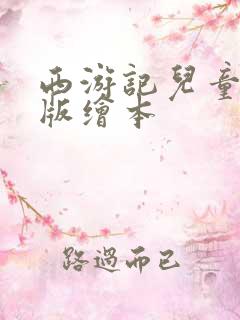 西游記兒童
版繪本
路過而已